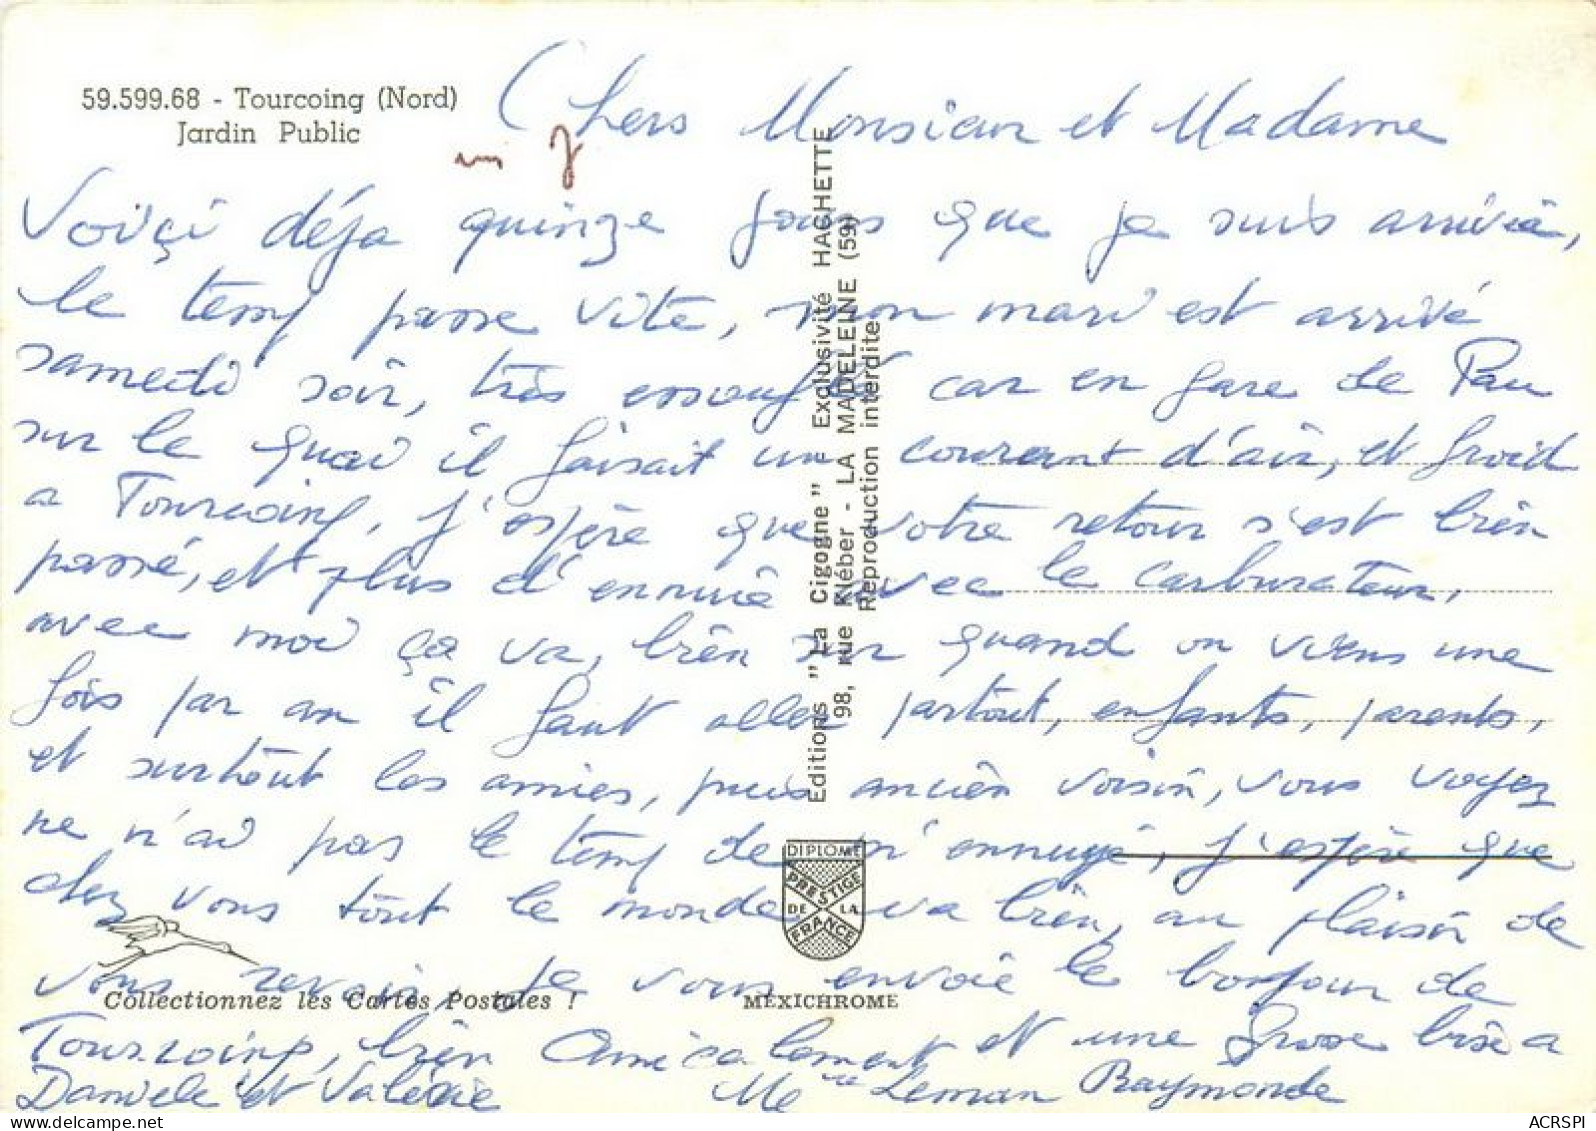 59.599.68 - Tourcoing (Nord)
Jardin Public
Chers Monsieur et Madame
Voiçi déja quinze jours que je suis arrivée,
le temp passe vite, mon mari est arrivé
samedi soir, très essouflé car en gare de Pau
sur le quai il faisait un courant d'air, et froid
a Tourcoing, j'espère que votre retour s'est bien
passé, et plus d'ennuie avec le carburateur,
avec moi ça va, bien sur quand on viens une
fois par an il faut aller partout, enfants, parents,
et surtout les amies, puis ancien voisin, vous voyez
ne n'ai pas le temp de m'ennuyé, j'espère que
chez vous tout le monde va bien, au plaisir de
vous revoir, je vous envoie le bonjour de
Tourcoing, bien Amicalement et une grosse bise a
Daniele et Valérie
Me Leman Raymonde
Editions "La Cigogne" - Exclusivité HACHETTE
98, rue Kléber - LA MADELEINE (59)
Reproduction interdite
DIPLOME
PRESTIGE
DE LA
FRANCE
Collectionnez les Cartes Postales !
MEXICHROME
ACRSPI